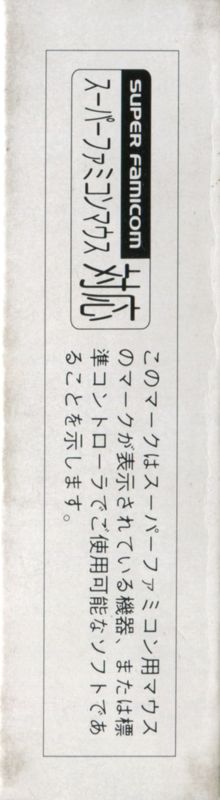 SUPER Famicom
スーパーファミコンマウス対応
このマークはスーパーファミコン用マウス
のマークが表示されている機器、または標
準コントローラでご使用可能なソフトであ
ることを示します。